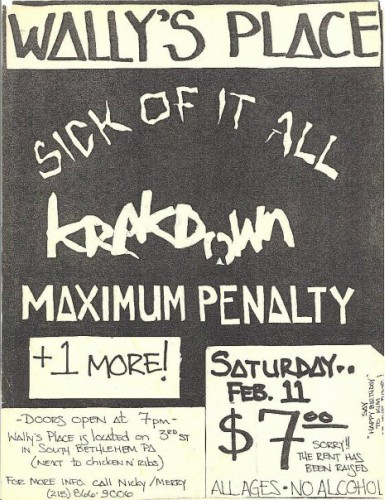 WALLY'S PLACE
SICK OF IT ALL
KRAKDOWN
MAXIMUM PENALTY
+1 MORE!
-DOORS OPEN at 7pm-
Wally's Place is located on 3RD ST
IN SOUTH BETHLEHEM PA
(NEXT to CHICKEN n' RIBS)
FOR MORE INFO. CALL Nicky/MERRY
(215) 866-9006
SATURDAY..
FEB. 11
$7.00
SORRY!!
THE RENT HAS
BEEN RAISED
SAY
"HAPPY BIRTHDAY"
TO KIM
ALL AGES • NO ALCOHOL